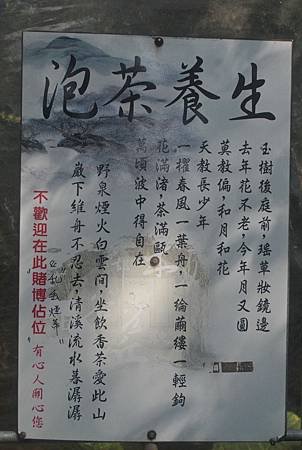 泡茶養生
玉樹後庭前,瑤草妝鏡邊
去年花不老,今年月又圓
莫教偏,和月和花
天教長少年
一櫂春風一葉舟,一綸繭縷一輕鉤
花滿渚,茶滿甌
萬頃波中得自在
野泉煙火白雲間,坐飲香茶愛此山
巖下維舟不忍去,清溪流水暮潺潺
不歡迎在此賭博佔位
有心人關心您